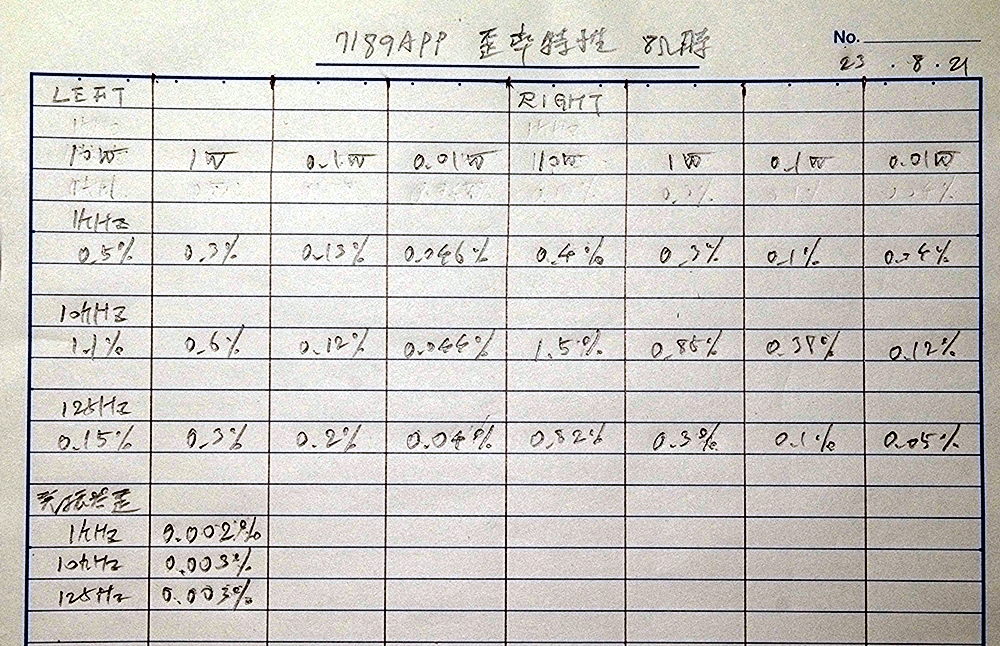 7189APP 歪率特性 8Ω時
No.
23 . 8 . 21
LEFT RIGHT
1KHz
10W 1W 0.1W 0.01W 10W 1W 0.1W 0.01W
1KHz
0.5% 0.3% 0.13% 0.046% 0.4% 0.3% 0.1% 0.04%
10KHz
1.1% 0.6% 0.12% 0.044% 1.5% 0.85% 0.37% 0.12%
125Hz
0.15% 0.3% 0.2% 0.04% 0.82% 0.3% 0.1% 0.05%
1KHz 0.002%
10KHz 0.003%
125Hz 0.003%